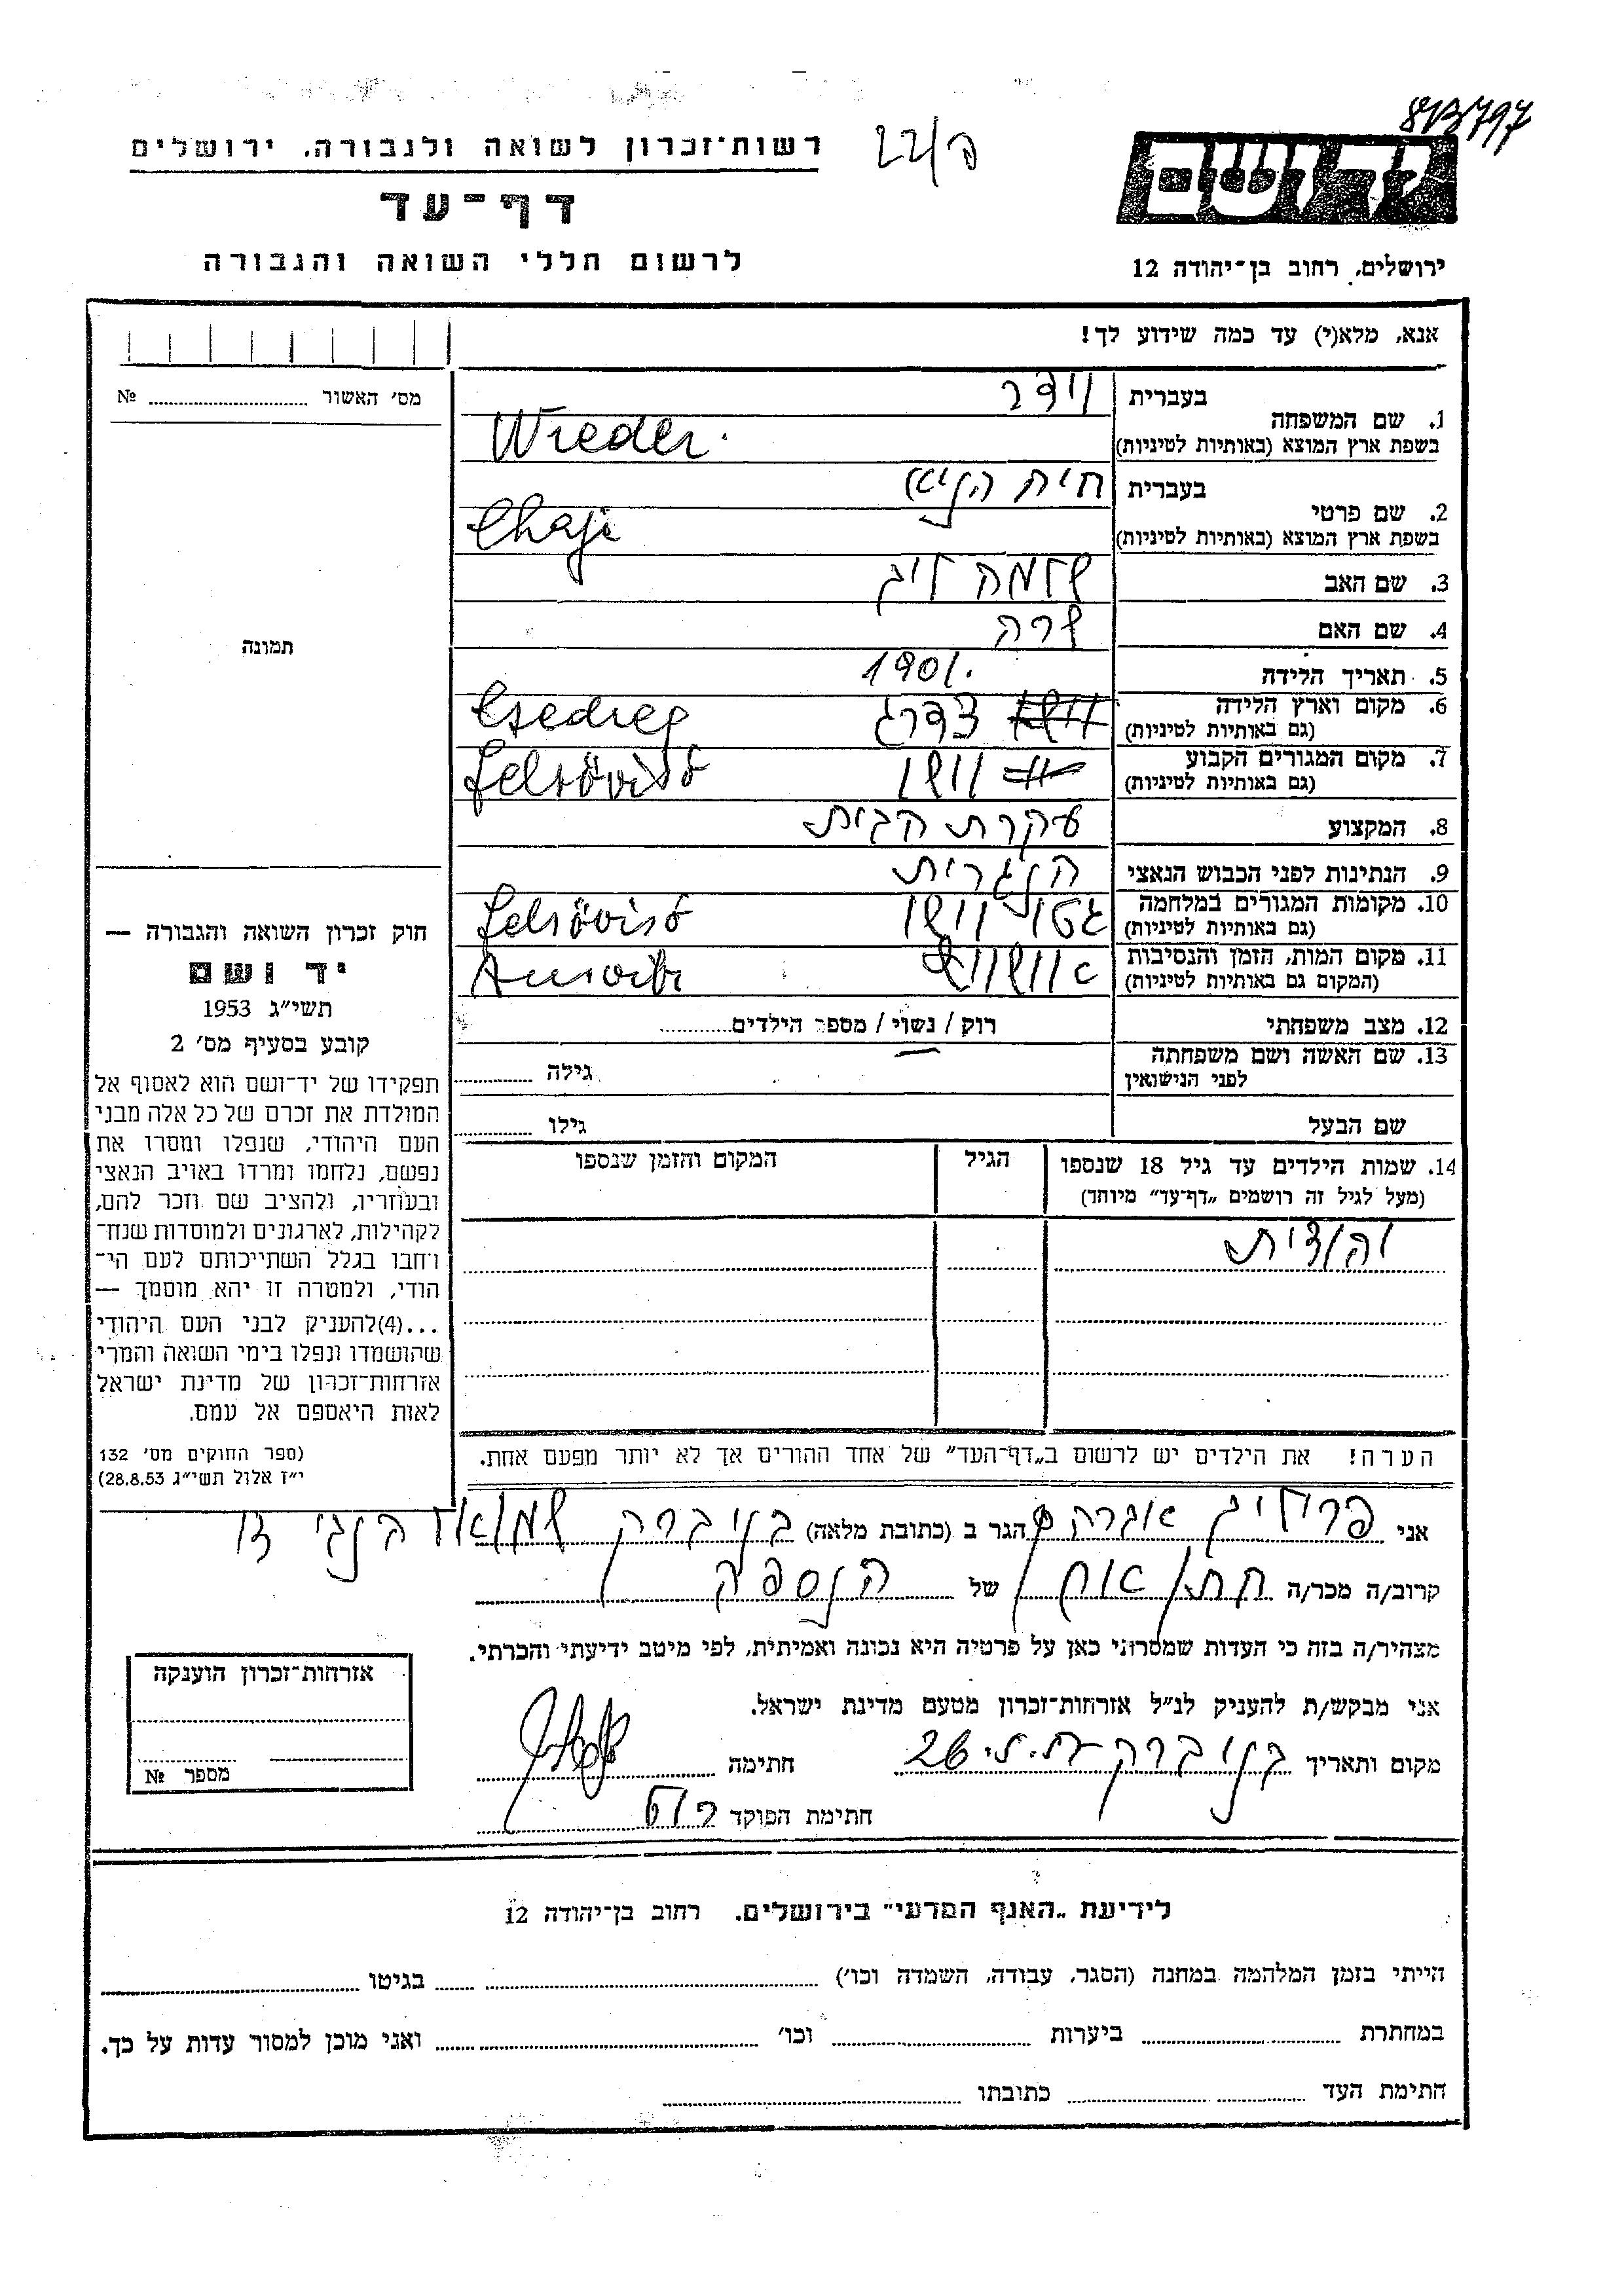 813797
ידושם
רשות־זכרון לשואה ולגבורה. ירושלים
22/פ
דף־עד
לרשום חללי השואה והגבורה
ירושלים, רחוב בן־יהודה 12
אנא, מלא(י) עד כמה שידוע לך!
מס׳ האשור № 
1. שם המשפחה
בעברית וידר
בשפת ארץ המוצא (באותיות לטיניות) Wieder
2. שם פרטי
בעברית חיה
בשפת ארץ המוצא (באותיות לטיניות) Chaje
3. שם האב שלמה זיג
4. שם האם שרה
5. תאריך הלידה 1901.
6. מקום וארץ הלידה צדרג Csedreg
(גם באותיות לטיניות)
7. מקום המגורים הקבוע וושו Felsövisó
(גם באותיות לטיניות)
8. המקצוע עקרת הבית
9. הנתינות לפני הכבוש הנאצי הונגרית
10. מקומות המגורים במלחמה גטו וושו Felsövisó
(גם באותיות לטיניות)
11. מקום המות, הזמן והנסיבות אוושוויץ Auswitz
(המקום גם באותיות לטיניות)
12. מצב משפחתי רוק / נשוי / מספר הילדים
13. שם האשה ושם משפחתה גילה
לפני הנישואין
שם הבעל גילו
14. שמות הילדים עד גיל 18 שנספו הגיל המקום והזמן שנספו
(מעל לגיל זה רושמים „דף־עד״ מיוחד)
יהודית
הערה! את הילדים יש לרשום ב„דף־העד״ של אחד ההורים אך לא יותר מפעם אחת.
תמונה
חוק זכרון השואה והגבורה —
יד ושם
תשי״ג 1953
קובע בסעיף מס׳ 2
תפקידו של יד־ושם הוא לאסוף אל
המולדת את זכרם של כל אלה מבני
העם היהודי, שנפלו ומסרו את
נפשם, נלחמו ומרדו באויב הנאצי
ובעוזריו, ולהציב שם וזכר להם,
לקהילות, לארגונים ולמוסדות שנח־
רחבו בגלל השתייכותם לעם הי־
הודי, ולמטרה זו יהא מוסמך —
...(4)להעניק לבני העם היהודי
שהושמדו ונפלו בימי השואה והמרי
אזרחות־זכרון של מדינת ישראל
לאות היאספם אל עמם.
(ספר החוקים מס׳ 132
י״ז אלול תשי״ג 28.8.53)
אני פרוליג אברהם הגר ב (כתובת מלאה) בני ברק שמואל הנגיד
קרוב/ה מכר/ה חתן אח של הנספה
מצהיר/ה בזה כי העדות שמסרתי כאן על פרטיה היא נכונה ואמיתית, לפי מיטב ידיעתי והכרתי.
אני מבקש/ת להעניק לנ״ל אזרחות־זכרון מטעם מדינת ישראל.
מקום ותאריך בני ברק חתימה
חתימת הפוקד
אזרחות־זכרון הוענקה
מספר №
לידיעת „האגף המדעי״ בירושלים. רחוב בן־יהודה 12
הייתי בזמן המלחמה במחנה (הסגר, עבודה, השמדה וכו׳) בגיטו
במחתרת ביערות וכו׳ ואני מוכן למסור עדות על כך.
חתימת העד כתובתו